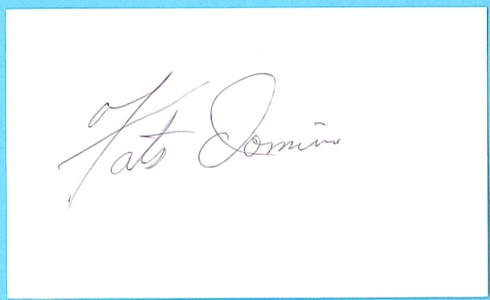 Fats Domino